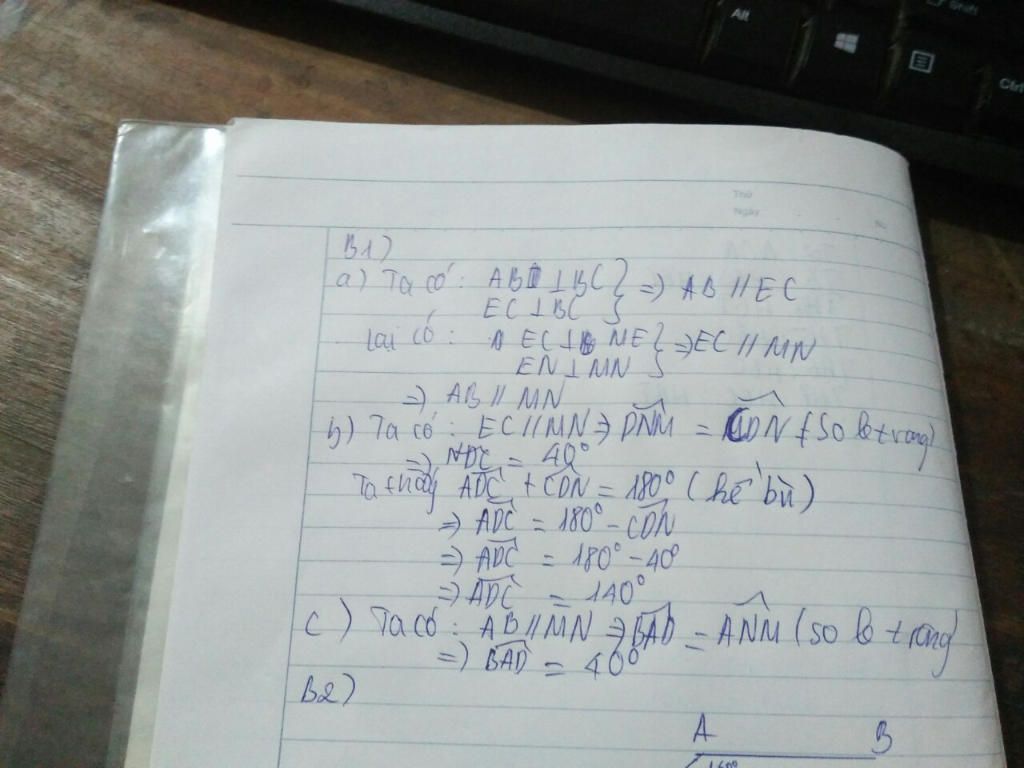 Alt
Shift
Ctrl
Thứ
Ngày
B1)
a) Ta có: AB ⊥ BC } => AB // EC
EC ⊥ BC
Lại có: EC ⊥ NE } => EC // MN
EN ⊥ MN
=> AB // MN
b) Ta có: EC // MN => DNM = CDN (so le trong)
=> NDC = 40°
Ta thấy ADC + CDN = 180° (kề bù)
=> ADC = 180° - CDN
=> ADC = 180° - 40°
=> ADC = 140°
c) Ta có: AB // MN => BAD = ANM (so le trong)
=> BAD = 40°
B2)
A B